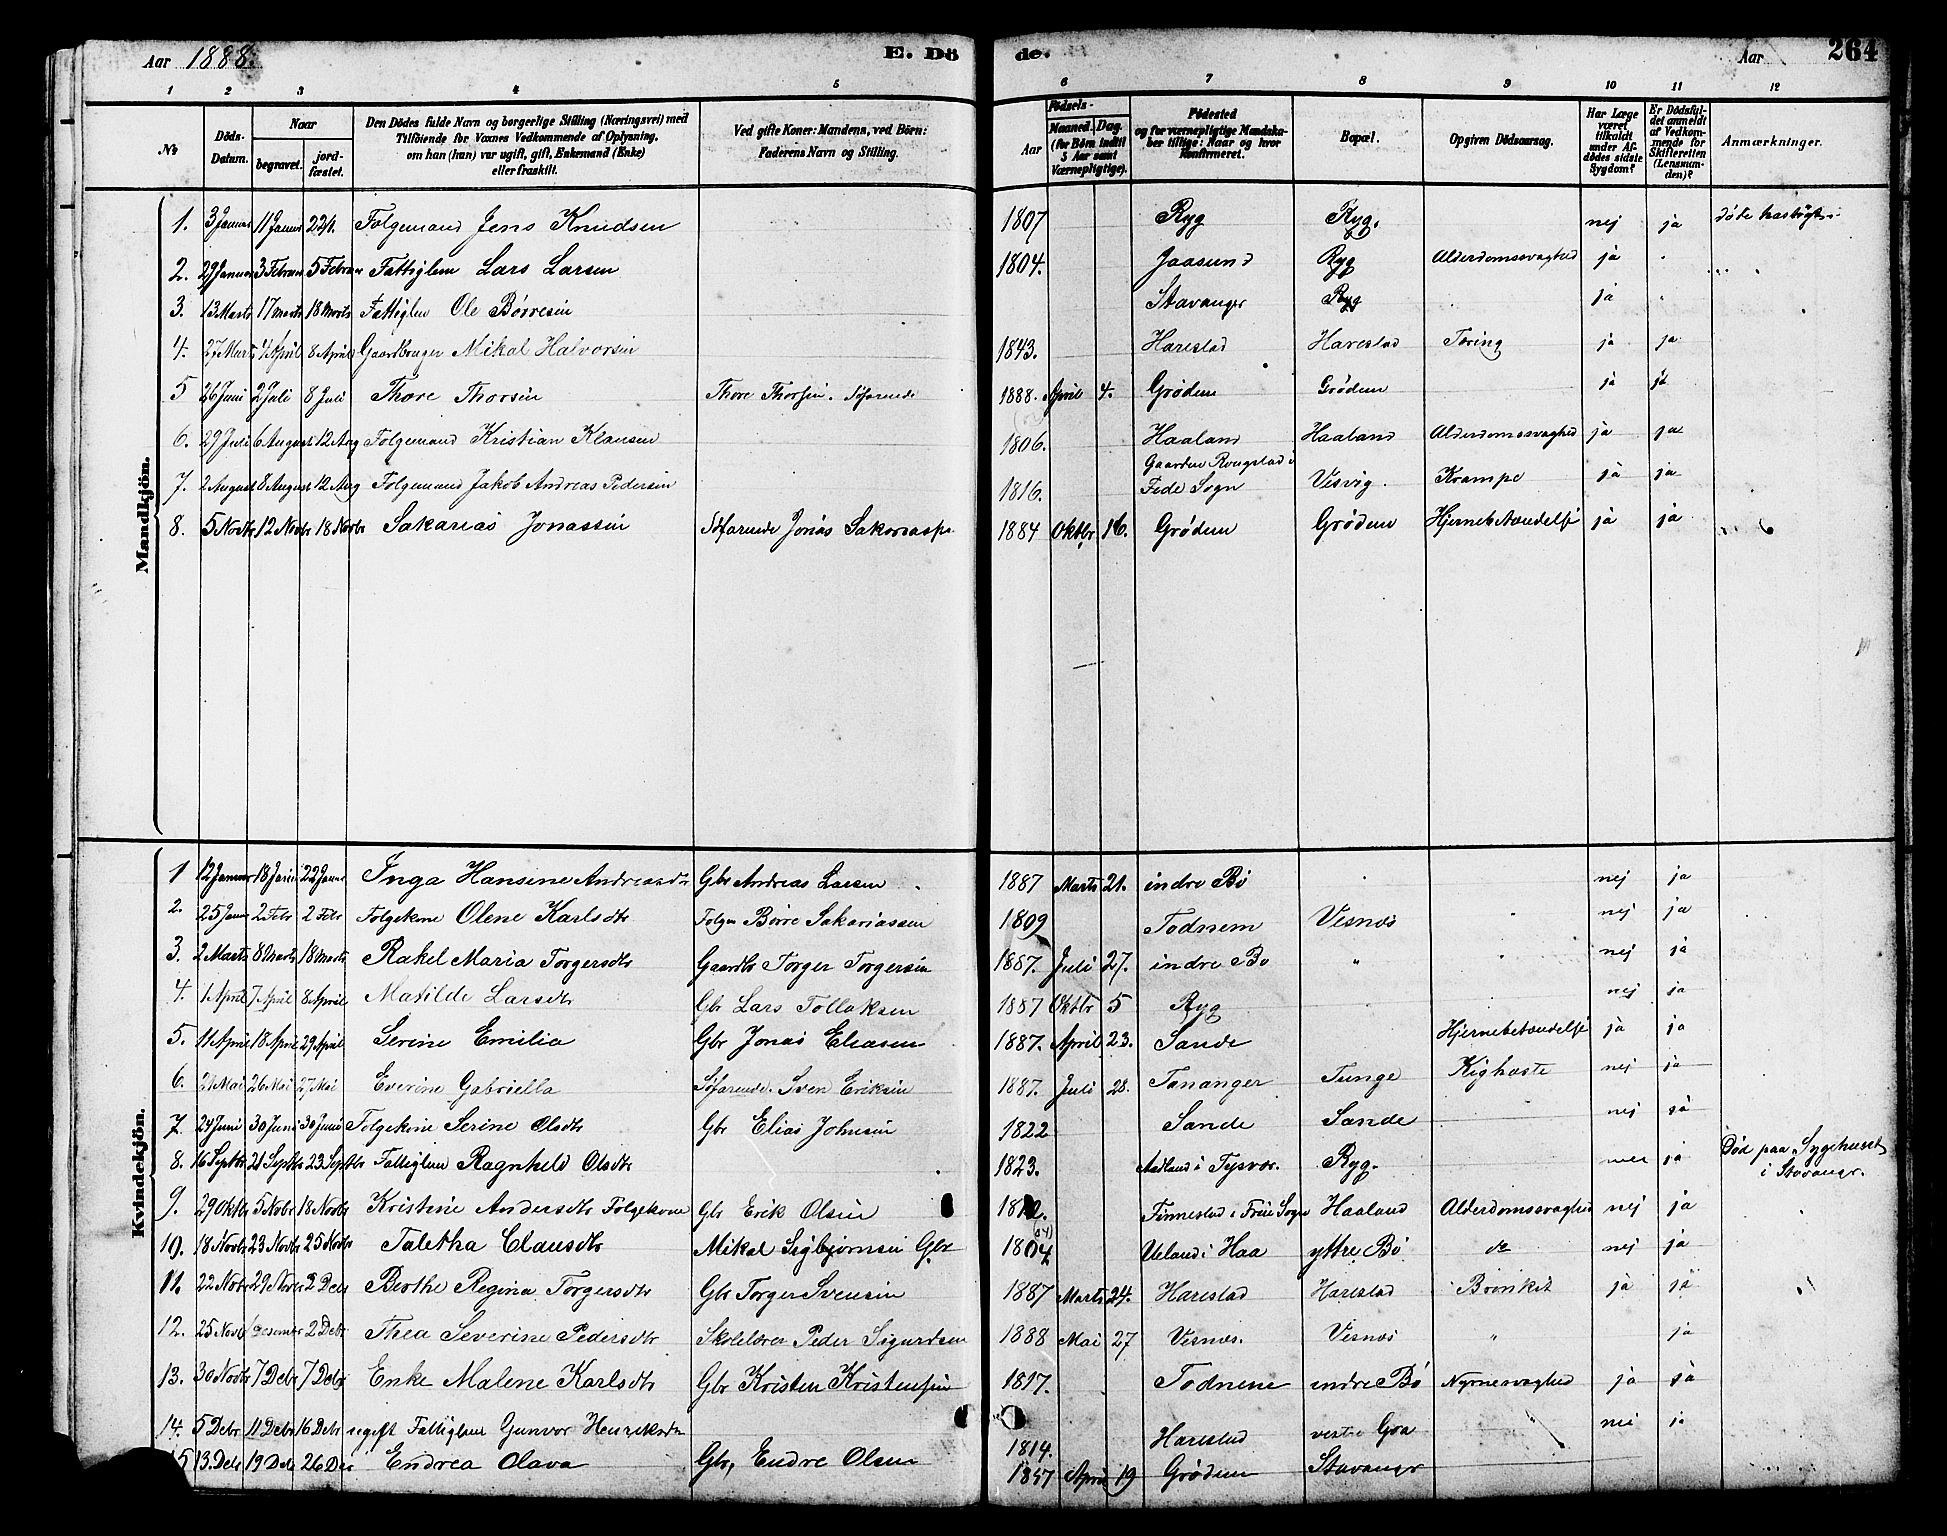 Aar 1888.
E. Dö
de.
Aar
264
1 2 3 4 5 6 7 8 9 10 11 12
No
Döds-Datum.
Naar
begravet.
jord-fæstet.
Den Dödes fulde Navn og borgerlige Stilling (Næringsvei) med
Tilföiende for Voxnes Vedkommende af Oplysning,
om han (hun) var ugift, gift, Enkemand (Enke)
eller fraskilt.
Ved gifte Koner: Mandens, ved Börn:
Faderens Navn og Stilling.
Födsels-
Aar
Maaned. Dag.
(for Börn indtil
5 Aar samt
Værnepligtige).
Födested
og for værnepligtige Mandska-
ber tillige: Naar og hvor
konfirmeret.
Bopæl.
Opgiven Dödsaarsag.
Har Læge
været
tilkaldt
under Af-
dödes sidste
Sygdom?
Er Dödsfal-
det anmeldt
af Vedkom-
mende for
Skifteretten
(Lensman-
den)?
Anmærkninger.
Mandkjön.
1. 3 Januar 11 Januar Folgemand Jens Knudsen 1807 Ryg Ryg. nej ja
2. 29 Januar 3 Februar 5 Februar Fattiglem Lars Larsen 1804. Jaasund Ryg Alderdomssvaghed ja "
3. 13 Marts 17 Marts 18 Marts Fattiglem Ole Börresen Stavanger Ryg ja "
4. 27 Marts 4 April 8 April Gaardbruger Mikal Halvorsen 1843. Harestad Harestad Tæring ja ja
5 26 Juni 2 Juli 8 Juli Thore Thorsen Thore Thorsen. Söfarende 1888. April 4. Grödem Grödem ja ja
6. 29 Juli 6 August 12 Aug Folgemand Kristian Klausen 1806. Haaland Haaland Alderdomssvaghed ja ja
7. 2 August 8 August 12 Aug Folgemand Jakob Andreas Pedersen 1816. Gaarden Rongstad i
Fede Sogn Visvig. Krampe ja ja
8. 5 Novbr 12 Novbr 18 Novbr Sakarias Jonassen Söfarende Jonas 1884 Oktbr 16. Grödem Grödem Hjernebetændelse ja ja
Kvindekjön.
1 12 Januar 18 Januar 22 Januar Inga Hansine Andreasdtr Gbr Andreas Larsen 1887 Marts 21. indre Bö nej ja
2. 25 Janu 2 Febr 2 Febr Folgekone Olene Karlsdtr Folgem Börre Sakariassen 1809 Todnem Visnæs nej ja
3. 2 Marts 8 Marts 18 Marts Rakel Maria Torgersdtr Gaardbr Torger Torgersen 1887. Juli 27. indre Bö " nej ja
4. 1 April 7 April 8 April Matilde Larsdtr Gbr Lars Tollaksen 1887 Oktbr 5 Ryg nej ja
5. 11 April 18 April 29 April Serine Emilia Gbr Jonas Eliasen 1887. April 23. Sande Hjernebetændelse ja ja
6. 21 Mai 26 Mai 27 Mai Everine Gabriella Söfarende. Sven Eriksen 1887. Juli 28. Tananger Tunge Kighoste nej ja
7. 24 Juni 30 Juni 30 Juni Folgekone Serine Olsdtr Gbr Elias Johnsen 1822 Sande Sande nej ja
8. 16 Septbr 21 Septbr 23 Septbr Fattiglem Ragnhild Olsdtr 1823. Aadland i Tysvær. Ryg. ja Död paa Sygehuset
i Stavanger.
9. 29 Oktbr 5 Nobr 18 Nobr Kristine Andersdtr Folgekone Gbr Erik Olsen Finnestad i Haaland Alderdomssvaghed nej ja
10. 18 Novbr 23 Novbr 25 Novbr Taletha Clausdtr Mikal Sigbjörnsen Gbr 1804 Ueland i Haa yttre Bö do nej ja
11. 22 Nobr 29 Nobr 2 Debr Berthe Regina Torgersdtr Gbr Torger Svensen 1887 Marts 24. Harestad Harestad Bronkit ja ja
12. 25 Novbr 1 Desember 2 Debr Thea Severine Pedersdtr Skolelærer Peder Sigurdsen 1888 Mai 27 Visnæs. Visnæs " ja
13. 30 Nobr 7 Debr 7 Debr Enke Malene Karlsdtr Gbr Kristen Kristensen 1817. Todnem indre Bö Nyrnesvaghed ja ja
14. 5 Debr 11 Debr 16 Debr ugift Fattiglem Gunvor Henriksdtr 1814. Harestad vestre Goa " nei ja
15 13. Debr 19 Debr 26 Debr Endrea Olava Gbr, Endre Olsen April 19 Grödem Stavanger